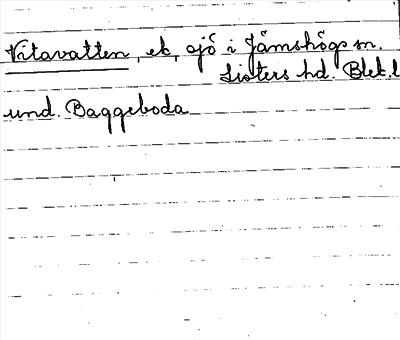 Vitavatten, ek, sjö i Jämshögs sn.
Listers hd. Blek. l
und. Baggeboda